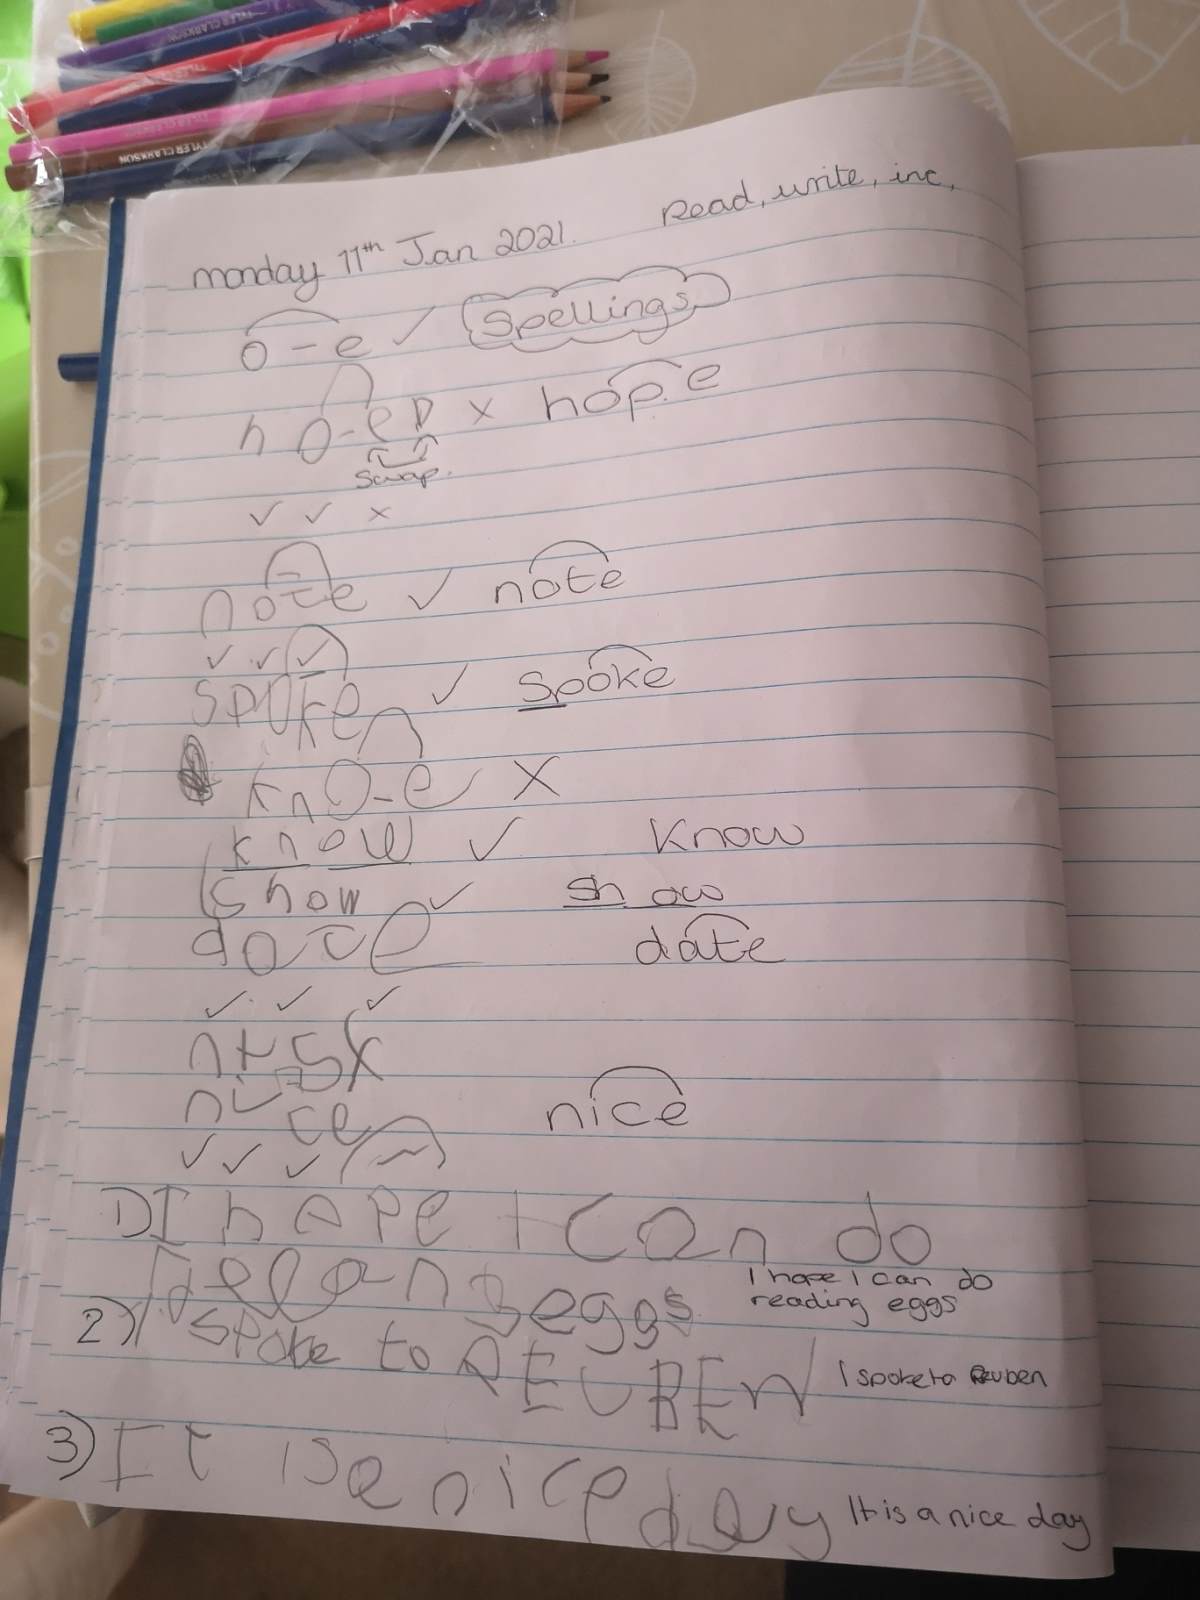 TYLER CLARKSON
TYLER CLARKSON
TYLER CLARKSON
TYLER CLARKSON
Read, write, inc,
monday 11th Jan 2021.
o-e ✓ Spellings
ho-ep x hope
swap.
✓ ✓ x
note ✓ note
✓ ✓ ✓
spoke ✓ spoke
kno-e x
know ✓ know
show ✓ show
date date
✓ ✓ ✓
nice nice
✓ ✓ ✓
1) I hope I can do
eggs I hope I can do
reading eggs
2) I spoke to REUBEN I spoke to Reuben
3) It is e nice day It is a nice day